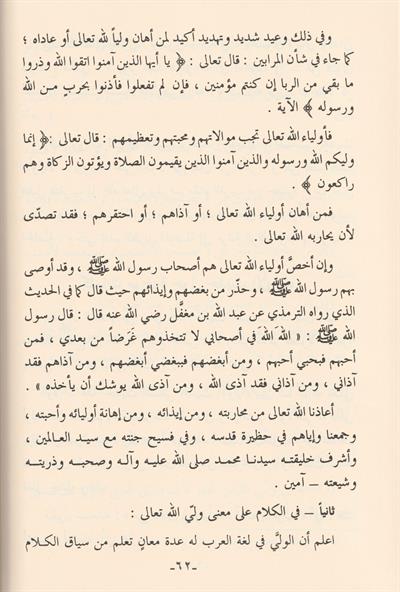 وفي ذلك وعيد شديد وتهديد أكيد لمن أهان ولياً لله تعالى أو عاداه ؛
كما جاء في شأن المرابين : قال تعالى : ﴿ يا أيها الذين آمنوا اتقوا الله وذروا
ما بقي من الربا إن كنتم مؤمنين ، فإن لم تفعلوا فأذنوا بحربٍ مـن الله
ورسوله ﴾ الآية .
فأولياء الله تعالى تجب موالاتهم ومحبتهم وتعظيمهم : قال تعالى :﴿ إنما
وليكم الله ورسوله والذين آمنوا الذين يقيمون الصلاة ويؤتون الزكاة وهم
راكعون ﴾ .
فمن أهان أولياء الله تعالى ؛ أو آذاهم ؛ أو احتقرهم ؛ فقد تصدّى
لأن يحاربه الله تعالى .
وإن أخصَّ أولياء الله تعالى هم أصحاب رسول الله ﷺ ، وقد أوصى
بهم رسول الله ﷺ ، وحذّر من بغضهم وإيذائهم حيث قال كما في الحديث
الذي رواه الترمذي عن عبد الله بن مغفَّل رضي الله عنه قال : قال رسول
الله ﷺ : « اللهَ اللهَ في أصحابي لا تتخذوهم غَرَضاً من بعدي ، فمن
أحبهم فبحبي أحبهم ، ومن أبغضهم فببغضي أبغضهم ، ومن آذاهم فقد
آذاني ، ومن آذاني فقد آذى الله ، ومن آذى الله يوشك أن يأخذه » .
أعاذنا الله تعالى من محاربته ، ومن إيذائه ، ومن إهانة أوليائه وأحبته ،
وجمعنا وإياهم في حظيرة قدسه ، وفي فسيح جنته مع سيـد العـالمين ،
وأشرف خليقتـه سيدنـا محمـد صلى الله عليـه وآلـه وصحبـه وذريتـه
وشيعته ــ آمين .
ثانياً ــ في الكلام على معنى وليّ الله تعالى :
اعلم أن الوليَّ في لغة العرب له عدة معانٍ تعلم من سياق الكلام
-٦٢-